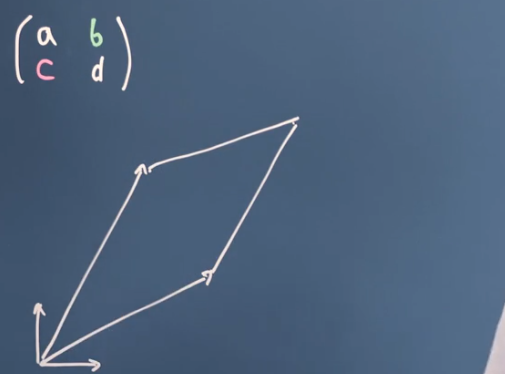 a b
c d